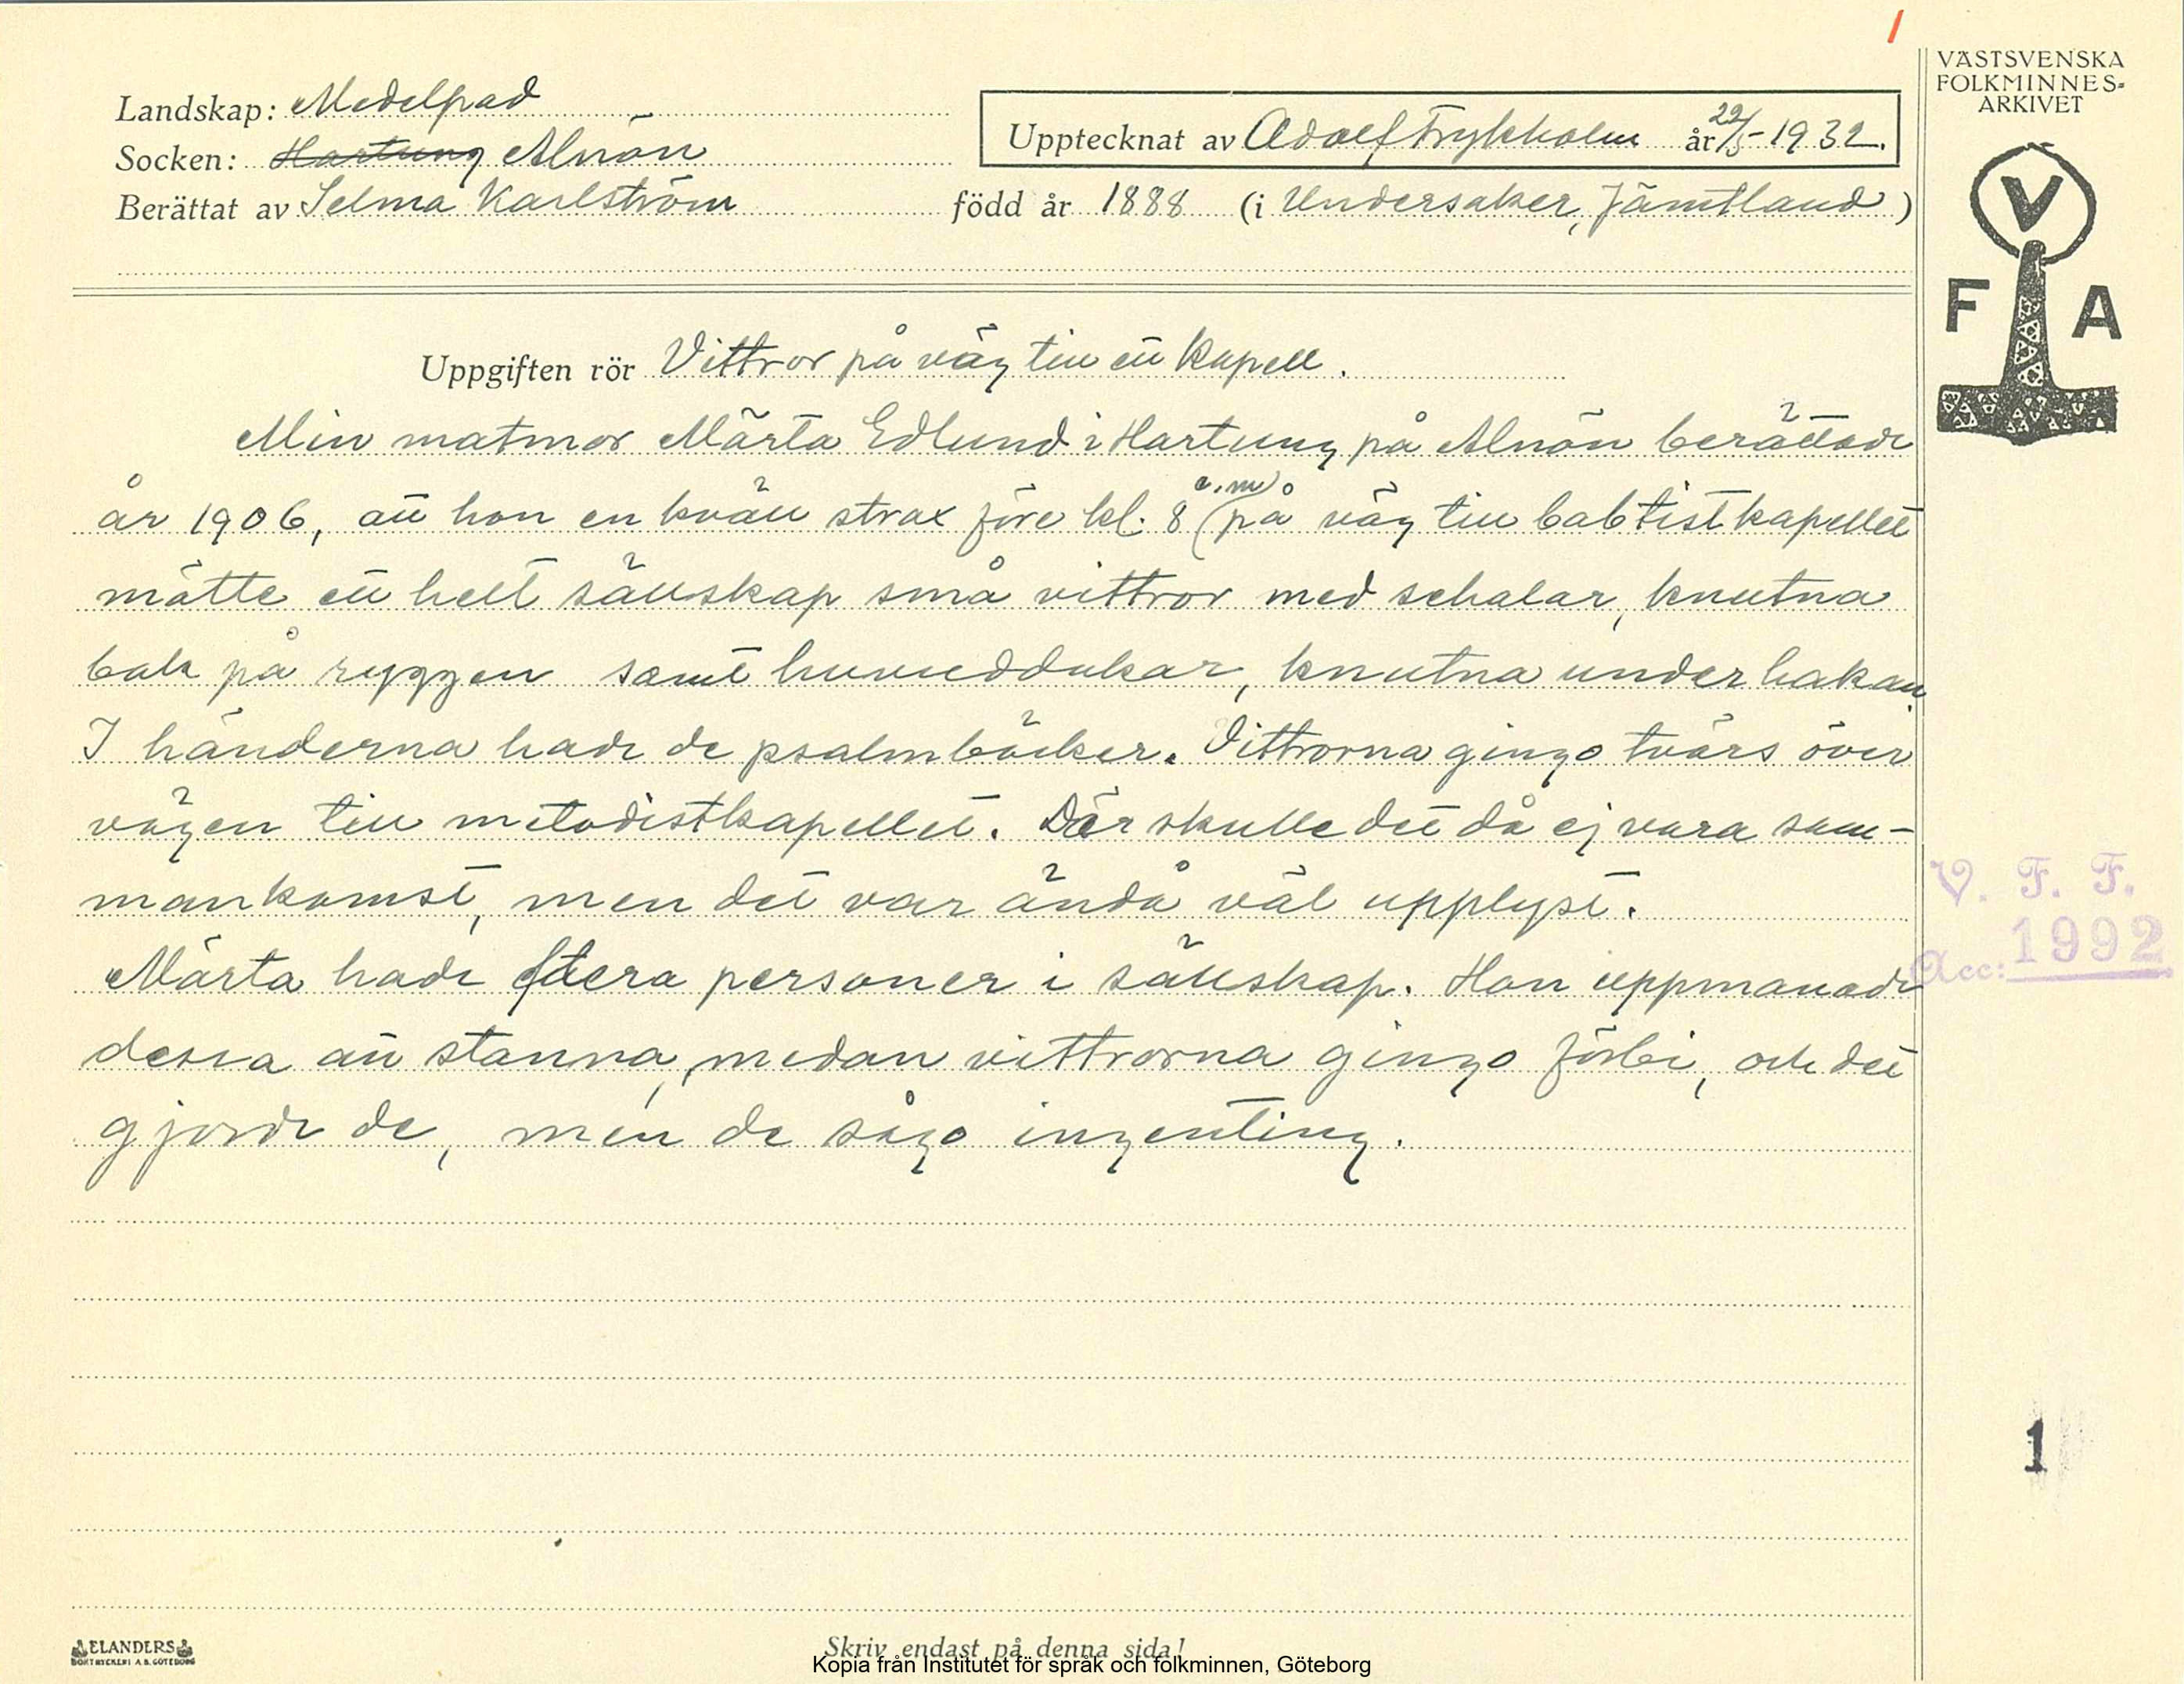 /
VÄSTSVENSKA
FOLKMINNES-
ARKIVET
Landskap: Medelpad
Socken: Hartung Alnön
Upptecknat av Adolf Frykholm år 22/5-1932.
Berättat av Selma Karlström född år 1888 (i Undersåker, Jämtland)
V
F A
Uppgiften rör Vittror på väg till ett kapell.
Min matmor Märta Edlund i Hartung på Alnön berättade
år 1906, att hon en kväll strax före kl. 8 e.m. på väg till babtistkapellet
mötte ett helt sällskap små vittror med schalar, knutna
bak på ryggen samt huvuddukar, knutna under hakan.
I händerna hade de psalmböcker. Vittrorna gingo tvärs över
vägen till metodistkapellet. Där skulle det då ej vara sam-
mankomst, men det var ändå väl upplyst.
V. F. F.
Acc: 1992
Märta hade flera personer i sällskap. Hon uppmanade
dessa att stanna, medan vittrorna gingo förbi, och det
gjorde de, men de sågo ingenting.
1
ELANDERS
BOKTRYCKERI A.B. GÖTEBORG
Skriv endast på denna sida!
Kopia från Institutet för språk och folkminnen, Göteborg